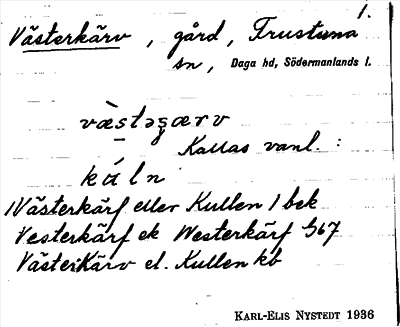 1.
Västerkärv, gård, Frustuna
sn, Daga hd, Södermanlands l.
væ̀stəʂærv
Kallas vanl:
káln
1) Västerkärf eller Kullen 1 bek
Vesterkärf ek Westerkärf G67
Västerkärv el. Kullen kb
KARL-ELIS NYSTEDT 1936